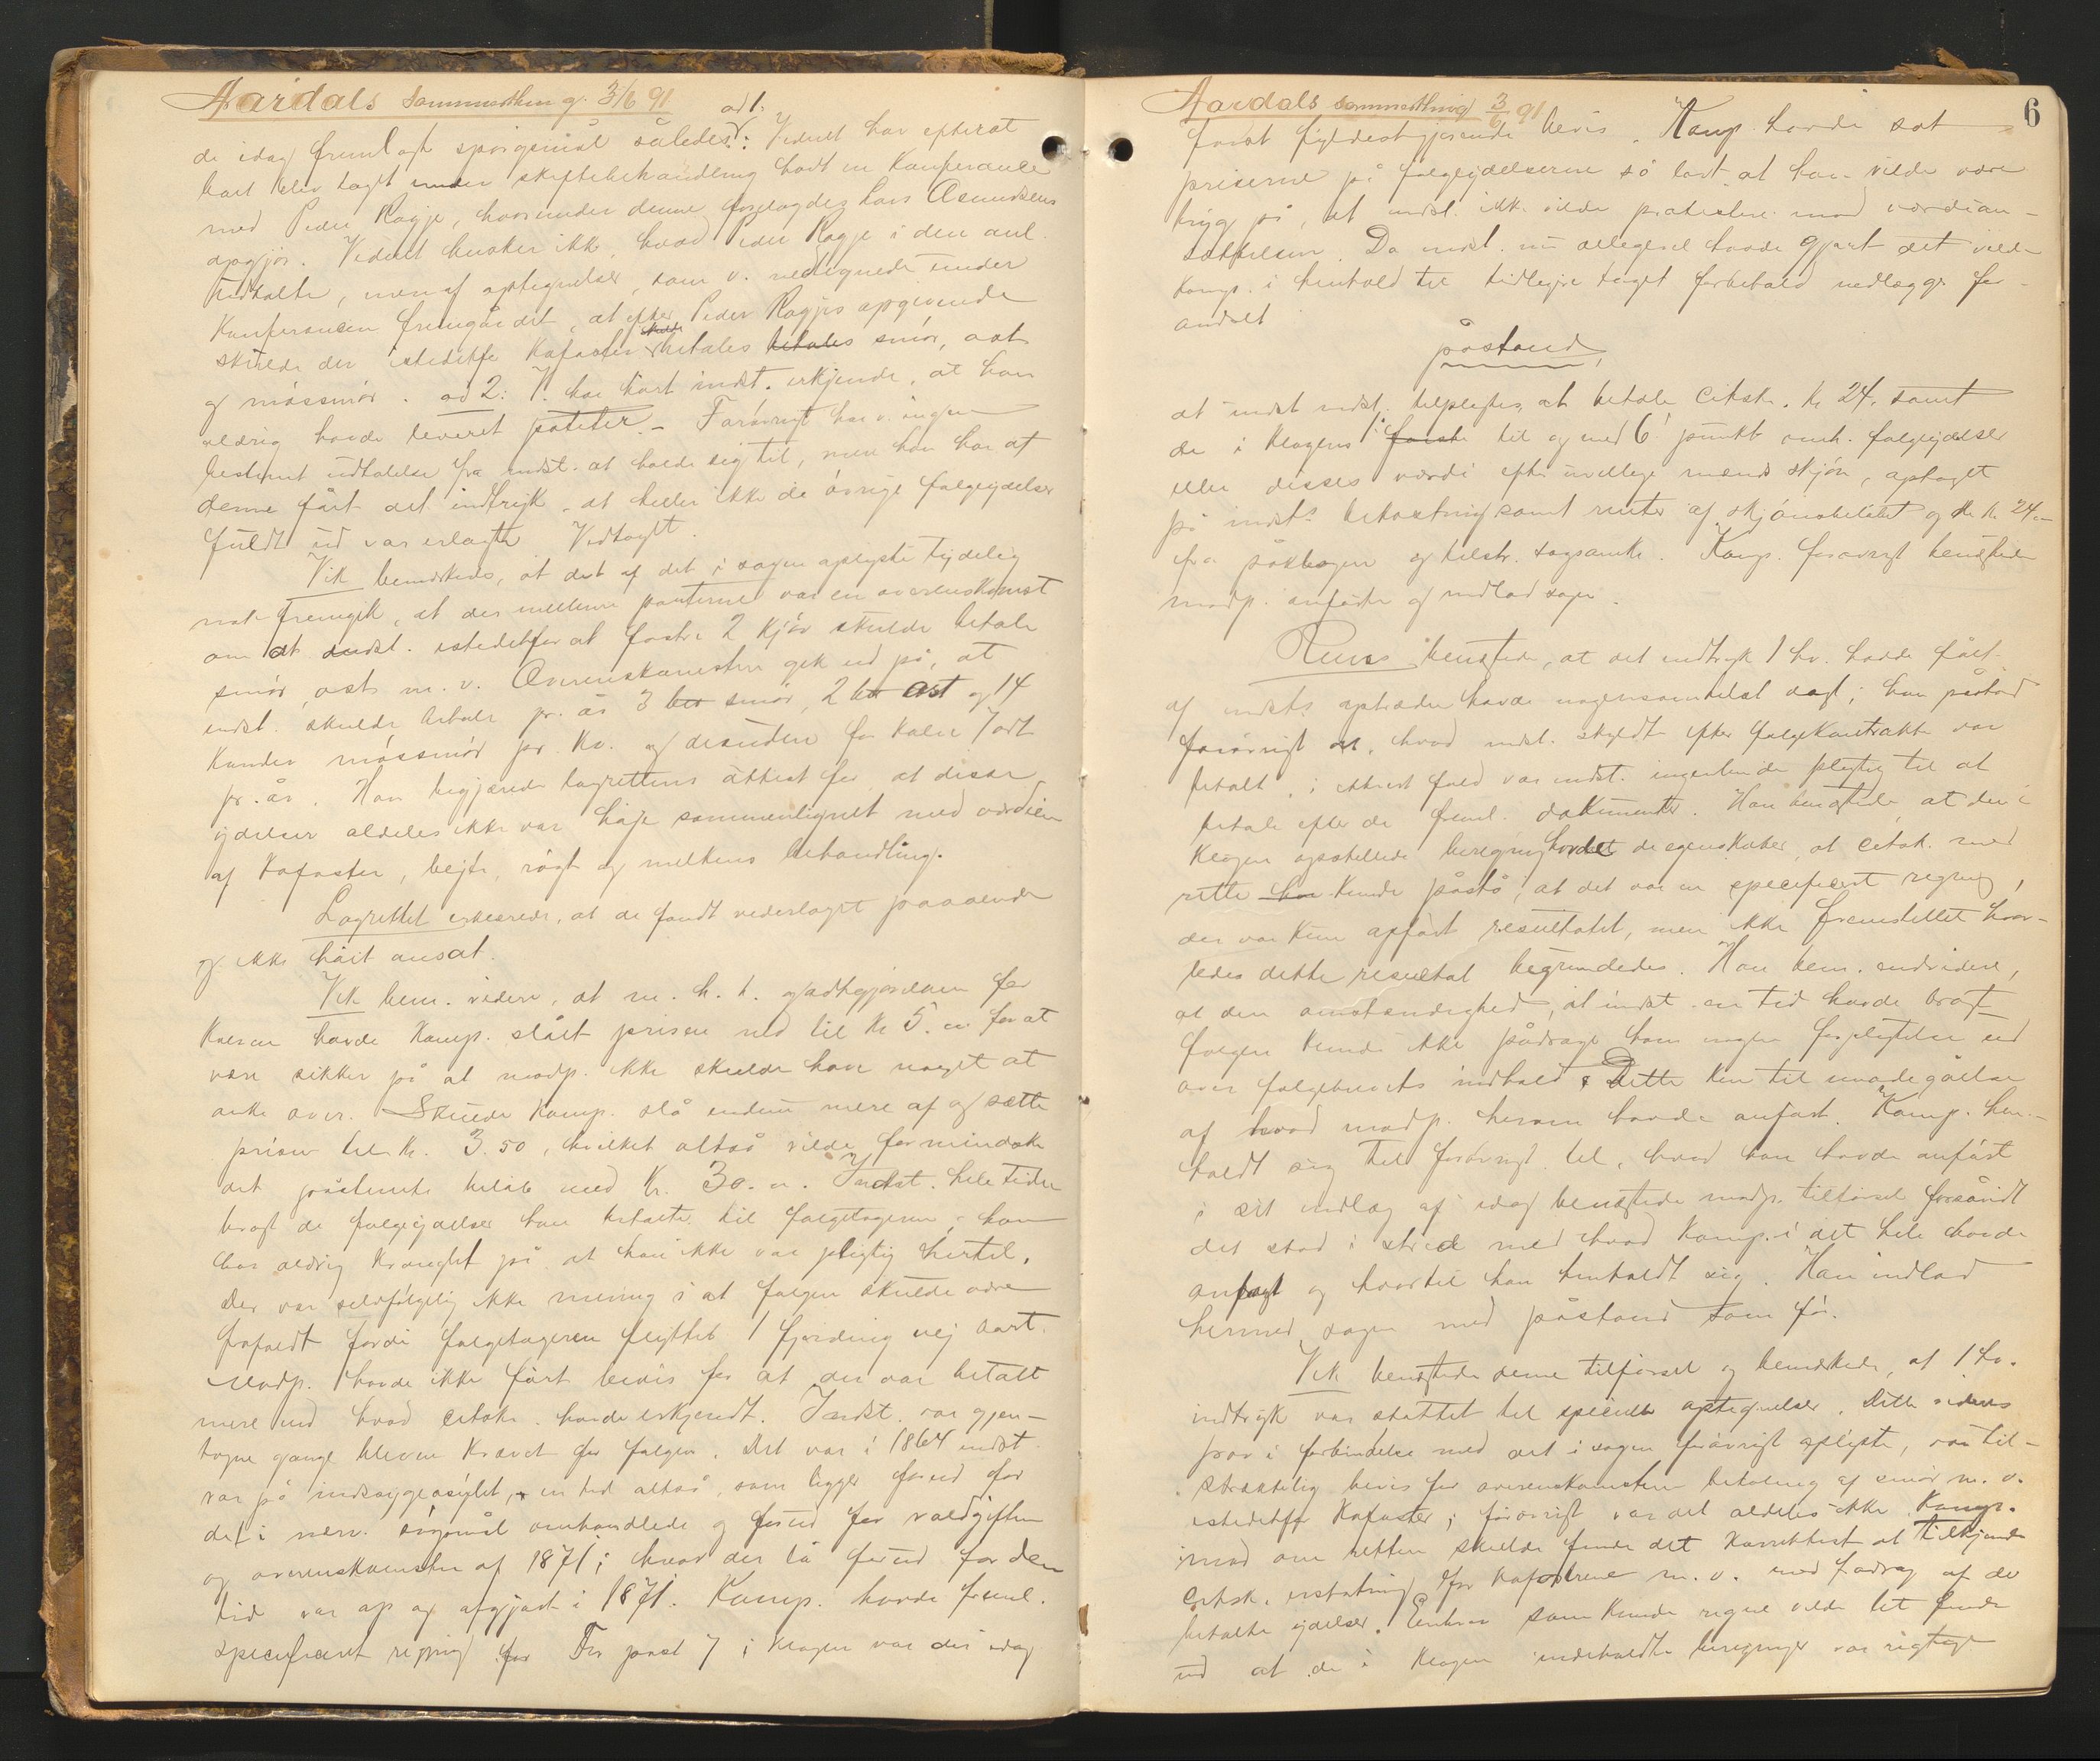 Aardals sommerthing 3/6 91
ad 1.
de idag fremlagte spörgsmål således: Vidnet har efterat
boet blev tagt under skiftebehandling havt en Konferance
med Peder Rogje, hvorunder denne forelagdes Lars Asmundsens
opgjör. Vidnet husker ikke, hvad Peder Rogje i den anl.
udtalte, men af optegnelser, som v. nedtegnede under
Konferancen fremgår det, at efter Peder Rogjes opgivende
skulde der istedetfor Kafoster skulde betales betales smör, ost
og mössmör. ad 2: V. har hört indst. erkjende, at han
aldrig havde leveret poteter. - Forövrigt har v. ingen
bestemt udtalelse fra indst. at holde sig til, men han har af
denne fået det indtryk, at heller ikke de övrige folgeydelser
fuldt ud var erlagte. Vedtaget.
Vik bemærkede, at det af det i sagen oplyste tydelig
nok fremgik, at der mellem parterne var en overenskomst
om at indst. istedetfor at fostre 2 kjör skulde betale
smör, ost m. v. Overenskomsten gik ud på, at
indst. skulde betale pr. år 3 smör, 2 ost og 14
Kander mössmör pr. Ko. og desuden for Kalve 7 ost
pr. år. Han begjærede lagrettens attest for, at disse
ydelser aldeles ikke var höje sammenlignet med værdien
af Kafoster, bejte, rögt og melkens behandling.
Lagrettet erklærede, at de fandt vederlaget passende
og ikke höit ansat.
Vik bem. videre, at m. h. t. godtgjörelsen for
Kalven havde Komp. slået prisen ned til Kr 5.00 for at
være sikker på at modp. ikke skulde have noget at
anke over. Skulde Komp. slå endnu mere af og sætte
prisen til Kr. 3.50, hvilket altså vilde formindske
det påstævnte belöb med Kr. 30.00. Indst. hele tiden
bragt de folgeydelser han betalte til folgetageren; han
har aldrig kranglet på at han ikke var pligtig hertil.
Der var selvfölgelig ikke mening i at folgen skulde være
frafaldt fordi folgetageren flyttet 1 fjerding vej bort.
Modp. havde ikke fört bevis for at der var betalt
mere end hvad citske. havde erkjendt. Indst. var gjen-
tagne gange bleven krævet for folgen. Det var i 1864 indst.
var på sindsygeasylet, en tid altså, som ligger forud for
det i nærv. sögsmål omhandlede og forud for voldgiften
og overenskomsten af 1871; hvad der lå forud for den
tid var op og afgjort i 1871. Komp. havde freml.
specificeret regning for Før post 7 i klagen var der idag

Aardals sommerthing 3/6 91
6
fört fyldestgjörende bevis. Komp. havde sat
priserne på folgeydelserne så lavt, at han vilde være
tryg på, at indst. ikke vilde protestere mod værdian-
sættelsen. Da indst. nu allegevel havde gjort det vilde
Komp. i henhold til tidligere taget forbehold nedlægge for-
andret
påstand,
at indst. tilpligtes at betale citske. Kr 24, samt
de i klagens 1. förste til og med 6. punkt omh. folgeydelser
eller disses værdi efter uvillige mænds skjön, optaget
på indst.s bekostning samt renter af skjönsbelöbet og de Kr. 24.-
fra påklagen og tilstr. sagsomk. Komp. forövrigt benægtede
modp. anförte og indlod sagen.
Ruus benægtede, at det indtryk 1 hv. havde fået
af indst.s optræden havde nogensomhelst vægt; han påstod
forövrigt at, hvad indst. skyldte efter folgekontrakten var
betalt, i ethvert fald var indst. ingenlunde pligtig til at
betale efter de freml. dokumenter. Han benægtede, at den i
Klagen opstillede beregning havde de egenskaber, at citsk. med
rette han kunde påstå, at det var en specificeret regning,
der var kun opfört resultatet, men ikke fremstillet hvor-
ledes dette resultat begrundedes. Han bem. endvidere,
at den omstændighed, at indst. en tid havde bragt
folgen kunde ikke pådrage ham nogen forpligtelse ud
over folgebrevets indhold. Dette kun til imødegåelse
af hvad modp. herom havde anfört. Komp. hen-
holdt sig til forövrigt til, hvad han havde anfört
i sit indlæg af idag benægtede modp. tilförsel forsåvidt
det stod i strid med hvad Komp. i det hele havde
anfört og hvortil han henholdt sig. Han indlod
hermed sagen med påstand som för.
Vik benægtede denne tilförsel og bemærkede, at 1 hv.
indtryk var støttet til specielle optegnelser. Dette vidnes
prov i forbindelse med det i sagen forövrigt oplyste, var til-
strækkelig bevis for overenskomsten betaling af smör m. v.
istedetfor Kafoster; forövrigt var det aldeles ikke Komp.
imod om retten skulde finde det korrektest at tilkjende
citsk. erstatning for kafostrene m. v. med fradrag af de
betalte ydelser. Enhver som kunde regne vilde let finde
ud at de i klagen indeholdte beregninger var rigtige